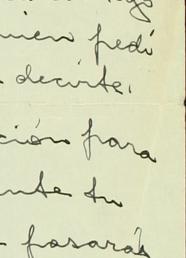 uien pedi
decirte.
ción para
ante tu
pasarás